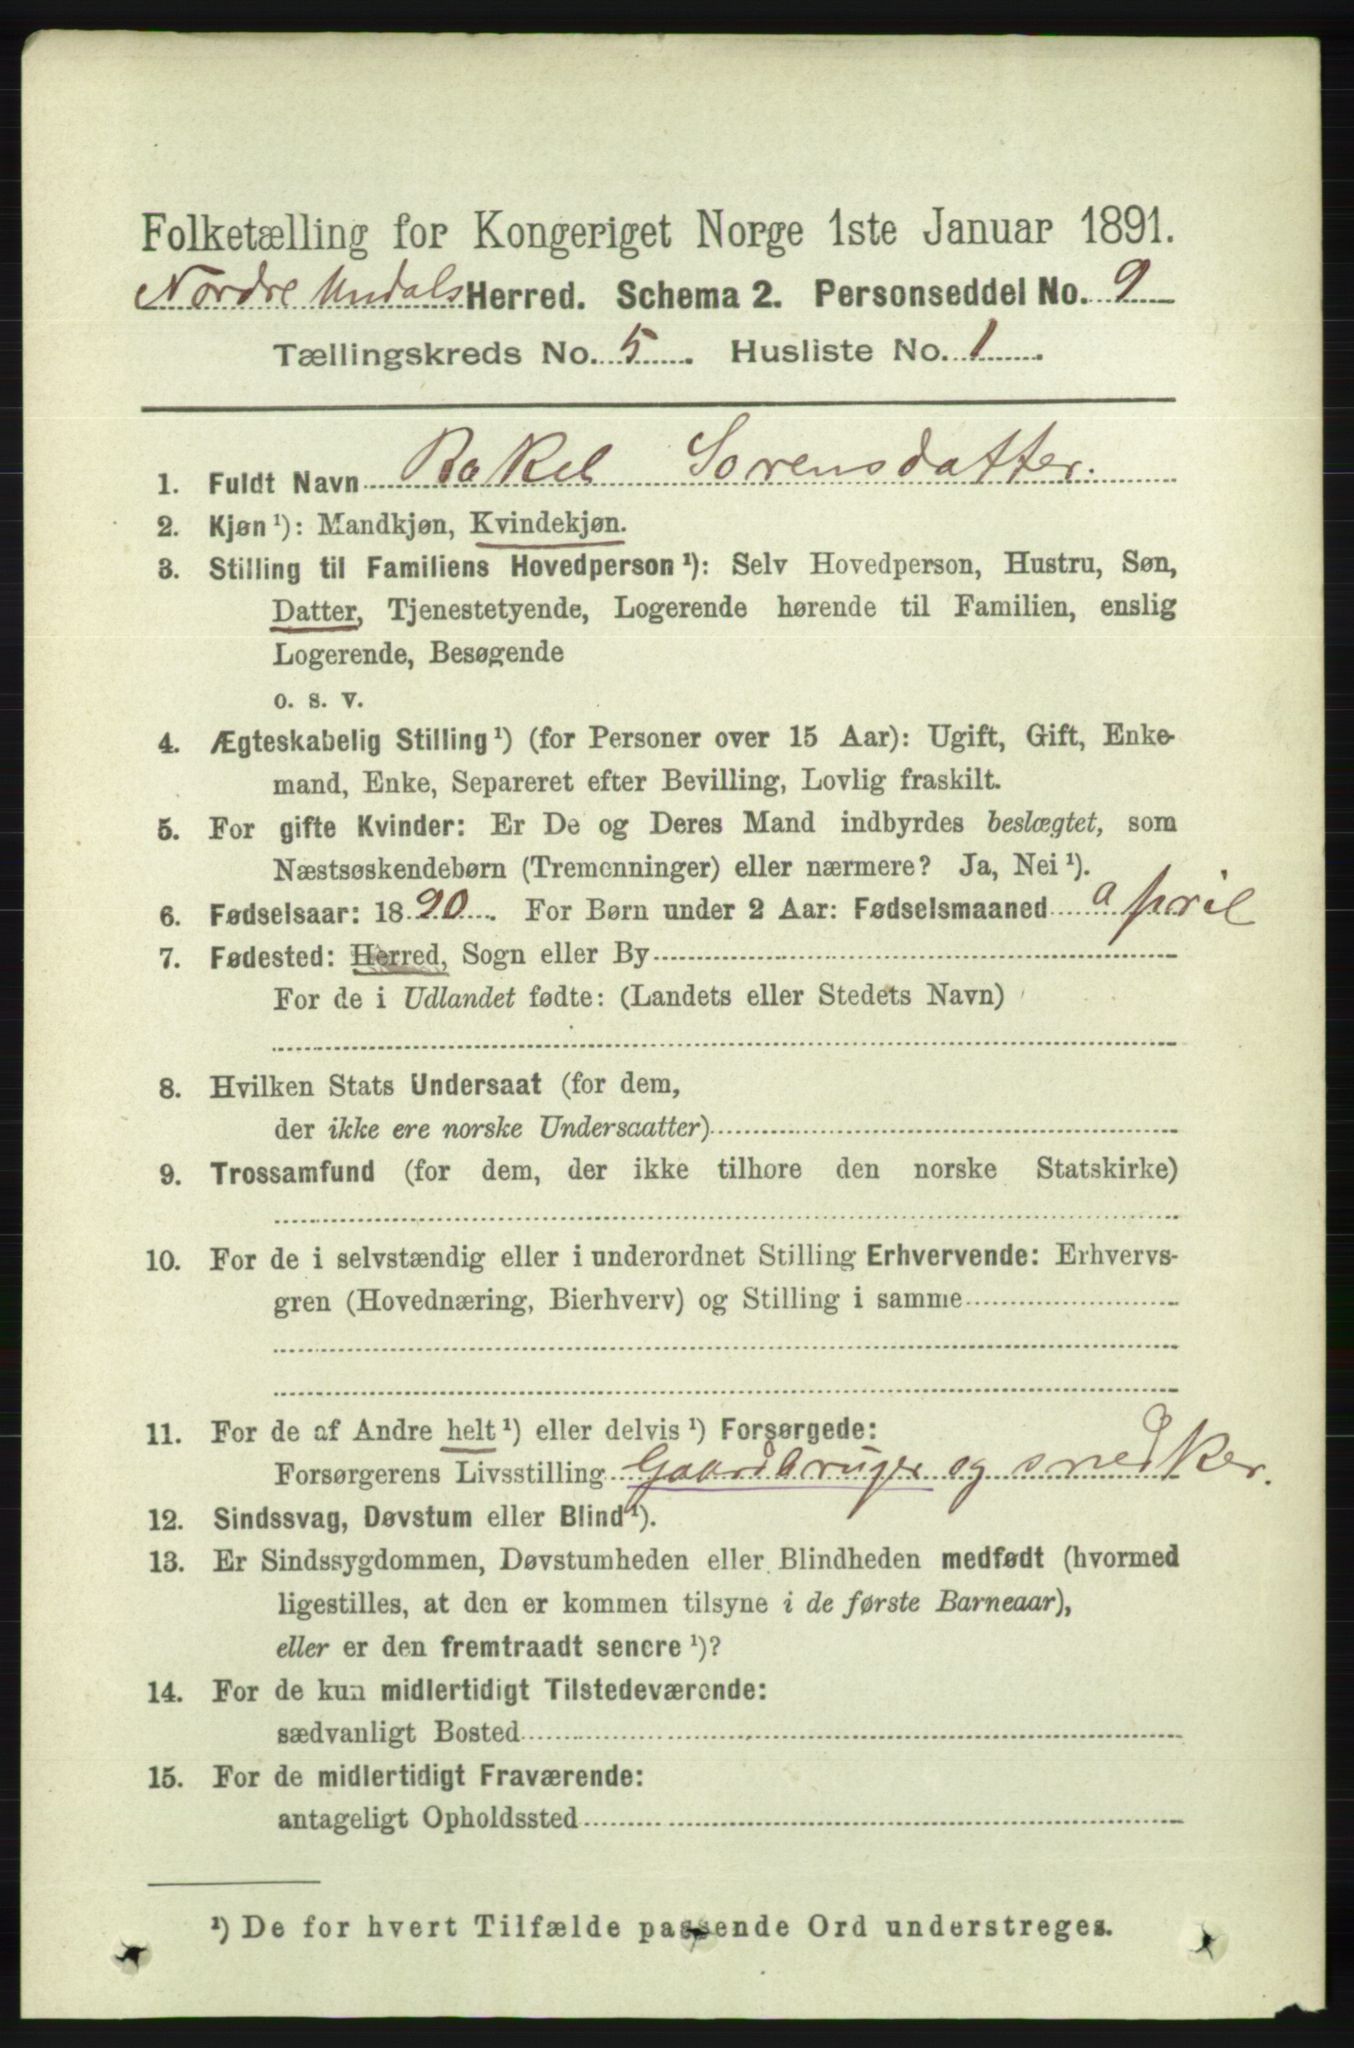 Folketælling for Kongeriget Norge 1ste Januar 1891.
Nordre Undals Herred. Schema 2. Personseddel No. 9
Tællingskreds No. 5. Husliste No. 1.
1. Fuldt Navn Rakel Sorensdatter.
2. Kjøn ¹): Mandkjøn, Kvindekjøn.
3. Stilling til Familiens Hovedperson ¹): Selv Hovedperson, Hustru, Søn,
Datter, Tjenestetyende, Logerende hørende til Familien, enslig
Logerende, Besøgende
o. s. v.
4. Ægteskabelig Stilling ¹) (for Personer over 15 Aar): Ugift, Gift, Enke-
mand, Enke, Separeret efter Bevilling, Lovlig fraskilt.
5. For gifte Kvinder: Er De og Deres Mand indbyrdes beslægtet, som
Næstsøskendebørn (Tremenninger) eller nærmere? Ja, Nei ¹).
6. Fødselsaar: 1890. For Børn under 2 Aar: Fødselsmaaned april
7. Fødested: Herred, Sogn eller By
For de i Udlandet fødte: (Landets eller Stedets Navn)
8. Hvilken Stats Undersaat (for dem,
der ikke ere norske Undersaatter)
9. Trossamfund (for dem, der ikke tilhore den norske Statskirke)
10. For de i selvstændig eller i underordnet Stilling Erhvervende: Erhvervs-
gren (Hovednæring, Bierhverv) og Stilling i samme
11. For de af Andre helt ¹) eller delvis ¹) Forsørgede:
Forsørgerens Livsstilling Gaardbruger og snedker.
12. Sindssvag, Døvstum eller Blind ¹).
13. Er Sindssygdommen, Døvstumheden eller Blindheden medfødt (hvormed
ligestilles, at den er kommen tilsyne i de første Barneaar),
eller er den fremtraadt senere ¹)?
14. For de kun midlertidigt Tilstedeværende:
sædvanligt Bosted
15. For de midlertidigt Fraværende:
antageligt Opholdssted
¹) De for hvert Tilfælde passende Ord understreges.